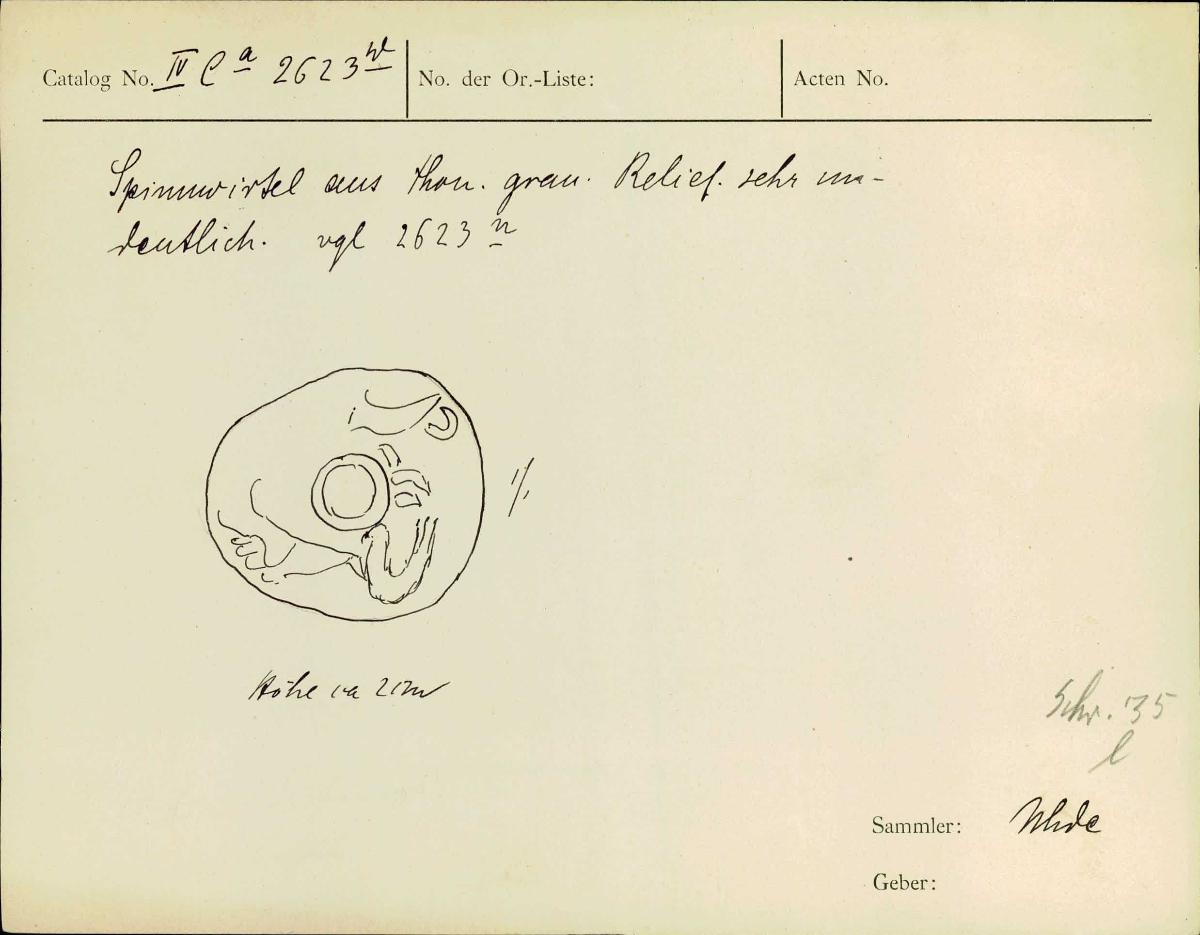 Catalog No. IV C a 2623
No. der Or.-Liste:
Acten No.
Spinnwirtel aus Thon. grau. Relief. sehr un-
deutlich. vgl 2623 n
1/1
Höhe ca 2cm
Schr. 35
l
Sammler: Uhde
Geber: